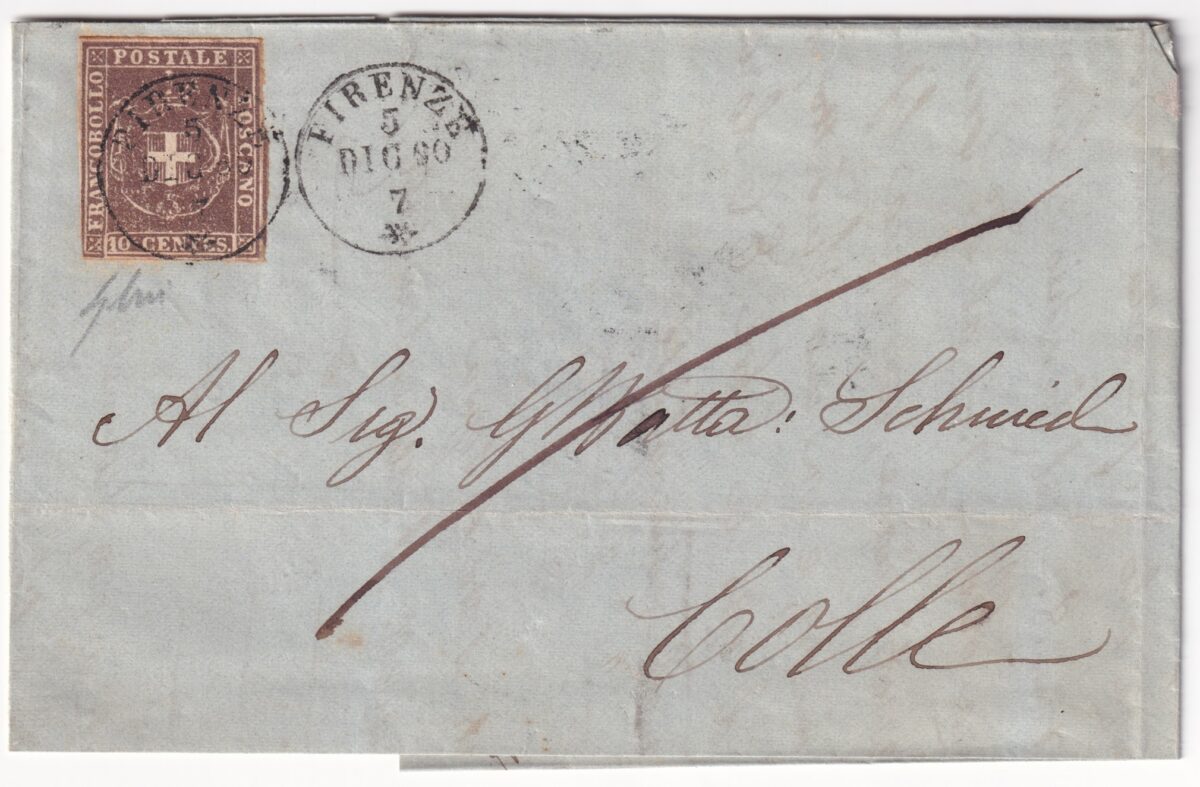 POSTALE
FRANCOBOLLO
TOSCANO
10 CENTES.
FIRENZE
5
DIC 60
7
FIRENZE
5
DIC 60
7
Al Sig. GBatta: Schmid
Colle